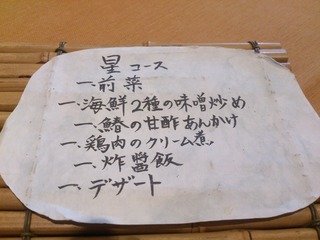 星 コース
一、前菜
一、海鮮2種の味噌炒め
一、鰆の甘酢あんかけ
一、鶏肉のクリーム煮
一、炸醤飯
一、デザート